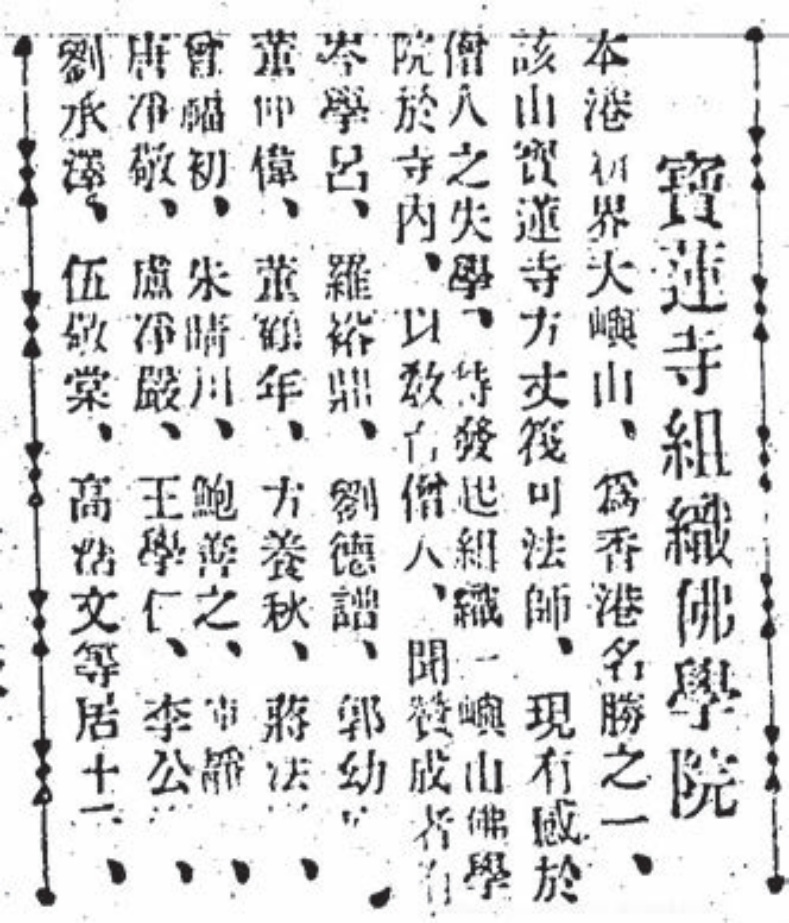 寶蓮寺組織佛學院
本港新界大嶼山、爲香港名勝之一、
該山寶蓮寺方丈筏可法師、現有感於
僧人之失學、特發起組織一嶼山佛學
院於寺內、以敎育僧人、聞贊成者有
岑學呂、羅裕鼎、劉德譜、郭幼
葉仰偉、葉鶴年、方養秋、蔣法
曾幅初、朱晴川、鮑善之、
唐淨敬、盧淨嚴、王學仁、李公
劉承澤、伍敬棠、高浩文等居士